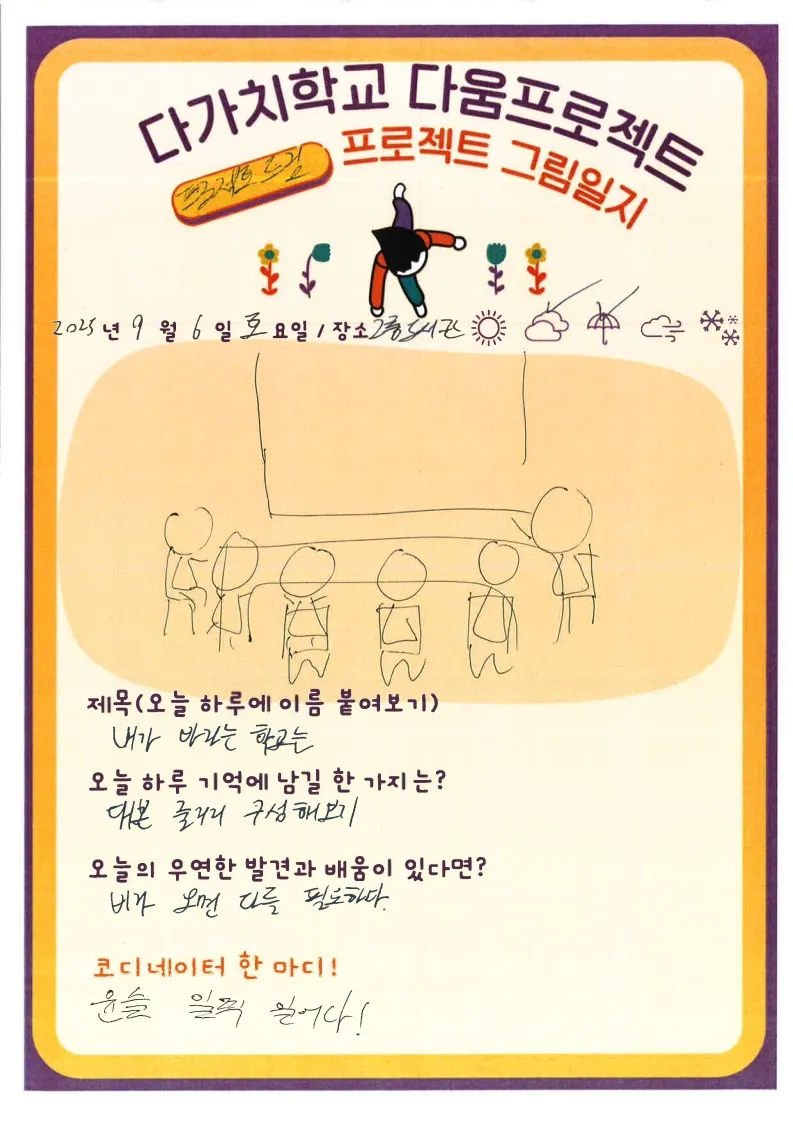 다가치학교 다움프로젝트
프로젝트 그림일지
프로젝트
2025년 9월 6일 토요일 / 장소 2층
제목(오늘 하루에 이름 붙여보기)
내가 바라는 학교는
오늘 하루 기억에 남길 한 가지는?
대본 줄거리 구성해보기
오늘의 우연한 발견과 배움이 있다면?
비가 오면 다들 필요하다.
코디네이터 한 마디!
윤슬 일찍 일어나!